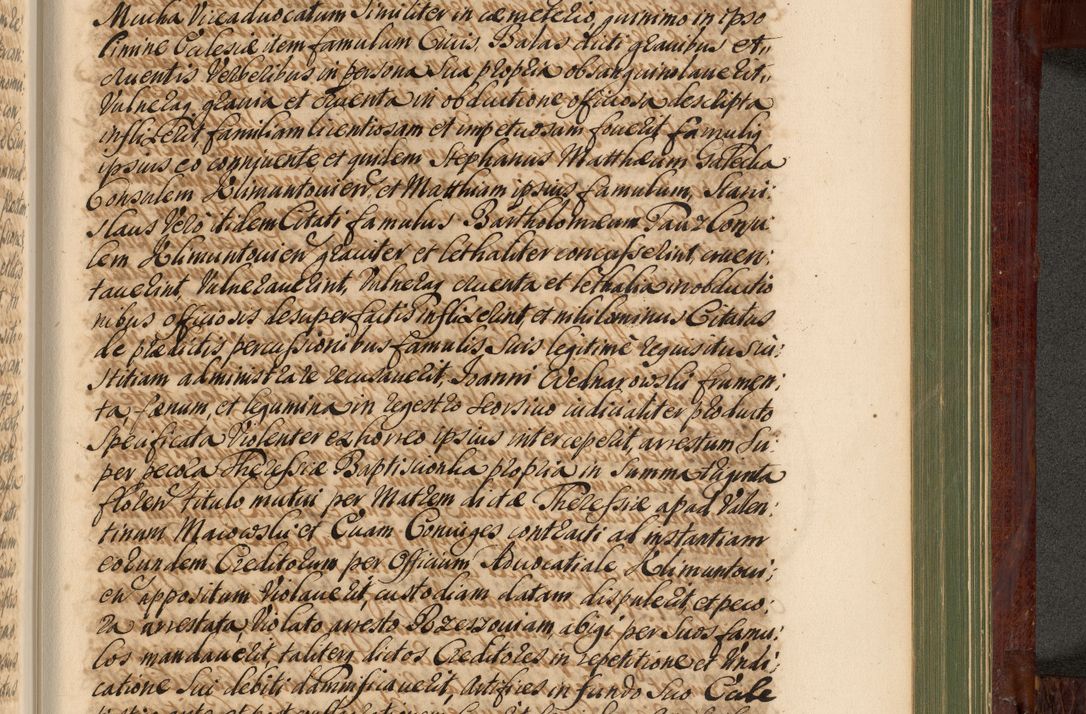 Mucha Viceadvocatum Similiter in cæmeterio, quinimo in ipso
limine Ecclesiæ item famulam Civis Balas dicti gravibus et
cruentis Verberibus in persona Sua propria obsanguinolaverit,
Vulneraq gravia et cruenta in obductione officiosa descripta
inflixerit, familiam licentiosam et impetuosam foverit famuliq
ipsius eo connivente, et quidem Stephanus Matthæum Gatecka
Consulem Klimuntovien et Matthiam ipsius famulum, Stani:
slaus Vero itidem Citati famulus Bartholomæum Pauz Consu
lem Klimuntovien graviter, et lethaliter concusserint, cruen:
taverint, Vulneraverint, Vulneraq cruenta et lethalia in obductio
nibus officiosis desuper factis inflixerint, et nihilominus Citatus
de prædictis percussionibus famulis Suis legitimè requisitus iu:
stitiam administrare recusaverit, Joanni Bednarowski frumen:
ta fænum, et legumina in regestro Seorsivo iudicialiter producto
Specificata Violenter ex horreo ipsius interceperit, arrestum Su:
per pecora Theressiæ Baptisuonka propria in Summa triginta
floren titulo mutui per Matrem dictæ Theressiæ apud Valen:
tinum Macowski et Evam Coniuges contracti ad instantiam
eorundem Creditorum per Officium Advocatiale Klimuntovi:
en appositum Violaverit, custodiam datam dispulerit, et peco:
ra arrestata, Violato arresto Rzeszoviam abigi per Suos famu:
los mandaverit, taliterq dictos Creditores in repetitione et Vindi:
catione Sui debiti damnificaverit, Artifices in fundo Suo Eccle